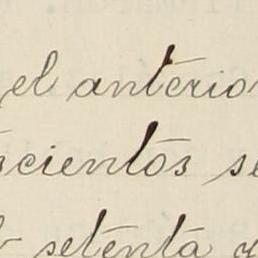 el anterio
scientos se
setenta y